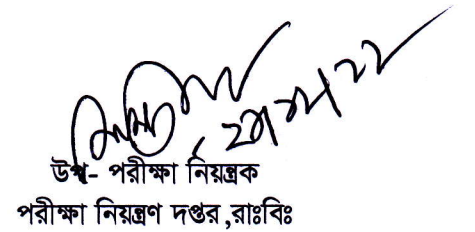 উপ- পরীক্ষা নিয়ন্ত্রক
পরীক্ষা নিয়ন্ত্রণ দপ্তর,রাঃবিঃ